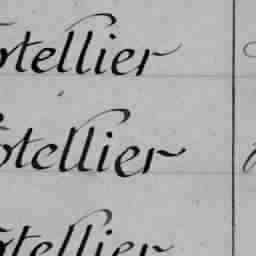 otellier
otellier
otellier